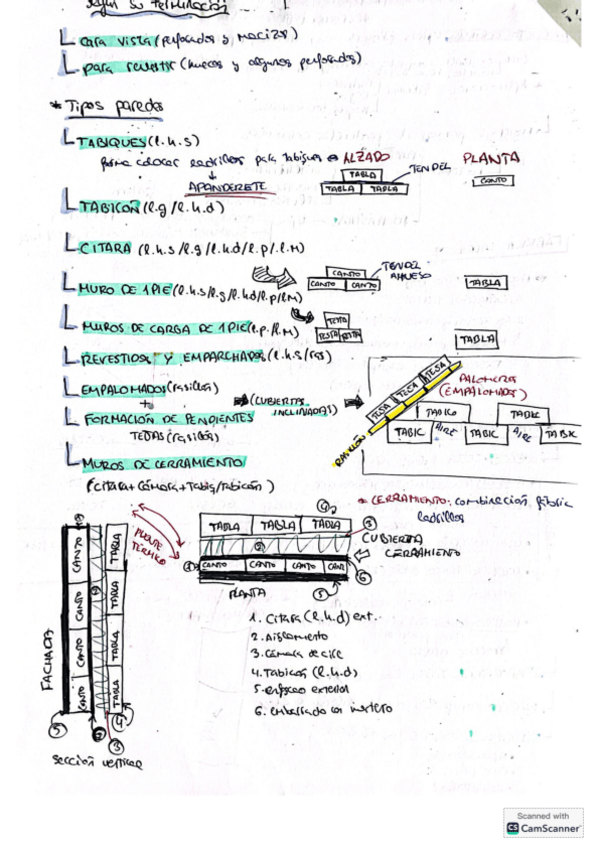 según su terminación
CARA VISTA (perforados y macizos)
para revestir (huecos y algunos perforados)
* Tipos paredes
TABIQUES (l.h.s)
forma colocar ladrillos para tabiques ALZADO
TENDEL
PLANTA
APANDERETE
TABLA
TABLA TABLA
CANTO
TABICÓN (l.g/l.h.d)
CITARA (l.h.s/l.g/l.h.d/l.p/l.M)
TENDEL
AHUESO
CANTO
CANTO CANTO
TABLA
MURO DE 1 PIE (l.h.s/l.g/l.h.d/l.p/l.M)
MUROS DE CARGA DE 1 PIE (l.p./l.M)
TESTA
TESTA TESTA
TABLA
REVESTIDOS Y EMPARCHADOS (l.h.s/ras)
EMPALOMADOS (rasillas)
+
(CUBIERTAS
INCLINADAS)
FORMACIÓN DE PENDIENTES
TEJAS (rasillas)
TESTA TESCA TESTA
RASILLÓN
PALOMEROS
(EMPALOMADOS)
TABICO TABIC
TABIC AIRE TABIC AIRE TABIC
MUROS DE CERRAMIENTO
(CITARA + CÁMARA + Tabiq/Tabicón)
* CERRAMIENTO: combinación fábric
ladrillos
PUENTE
TÉRMICO
TABLA TABLA TABLA
CUBIERTA
CERRAMIENTO
CANTO CANTO CANTO CANT
PLANTA
1. Citara (l.h.d) ext.
2. Aislamiento
3. Cámara de aire
4. Tabicón (l.h.d)
5. enfoscado exterior
6. embarrado con mortero
FACHADA
CANTO CANTO CANTO CANTO
TABLA TABLA TABLA TABLA
5
4
3
sección vertical
Scanned with
CS CamScanner